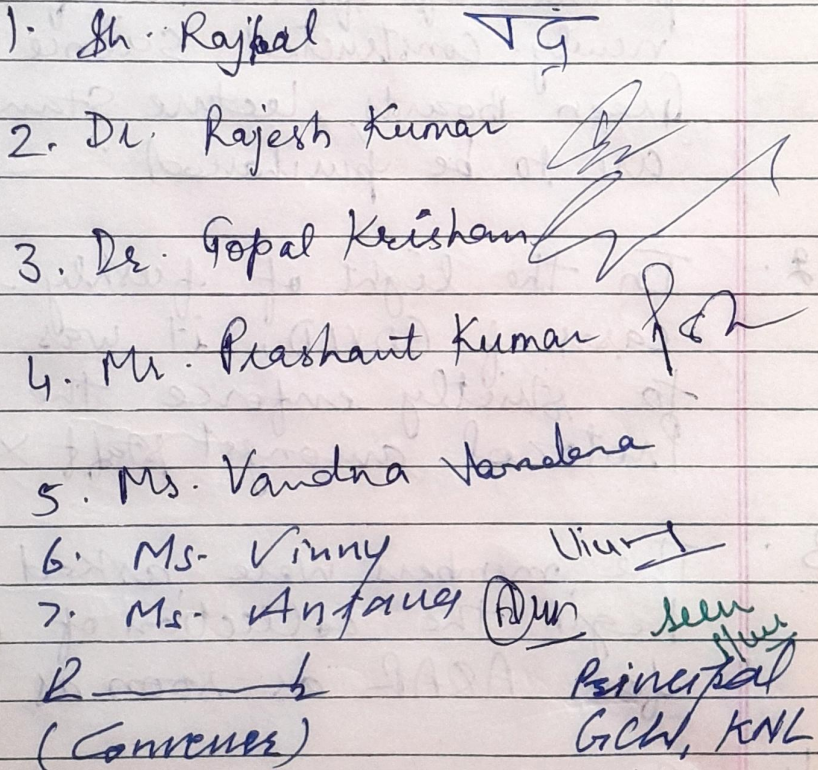 1. Sh. Rajpal
2. Dr. Rajesh Kumar
3. Dr. Gopal Krishan
4. Mr. Prashant Kumar
5. Ms. Vandna Vandana
6. Ms. Vinny Vinny
7. Ms. Anjana
seen
(Convener)
Principal
GCW, KNL